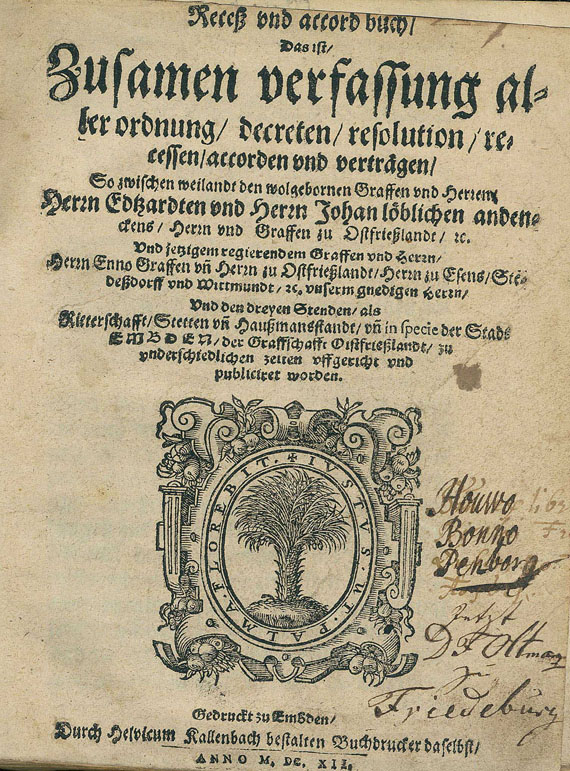 Receß vnd accord buch/
Das ist/
Zusamen verfassung al-
ler ordnung/ decreten/ resolution/ re-
cessen/ accorden vnd verträgen/
So zwischen weilandt den wolgebornen Graffen vnd Herren/
Herrn Edtzardten vnd Herrn Johan löblichen anden-
ckens/ Herrn vnd Graffen zu Ostfrießlandt/ ꝛc.
Vnd jetzigem regierendem Graffen vnd Herrn/
Herrn Enno Graffen vñ Herrn zu Ostfrießlandt/ Herrn zu Esens/ Ste-
deßdorff vnd Wittmundt/ ꝛc, vnserm gnedigen Herrn/
Vnd den dreyen Stenden/ als
Ritterschafft/ Stetten vñ Haußmansstandt/ vñ in specie der Stadt
EMBDEN/ der Graffschafft Oistfrießlandt/ zu
vnderschiedlichen zeiten vffgericht vnd
publiciret worden.
IVSTVS. VT. PALMA FLOREBIT.
Houwo
Bonno
Penborg
Jetzt
D F Oltmanz
zu
Friedeburg
Gedruckt zu Embden/
Durch Helvicum Kallenbach bestalten Buchdrucker daselbst/
ANNO M, DC, XII,